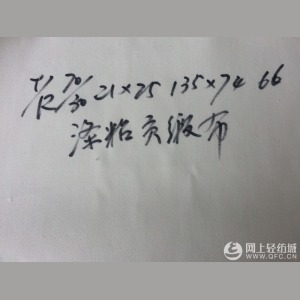 T/R 70/30 21×25 135×74 66
涤粘贡缎布
网上轻纺城
WWW.QFC.CN